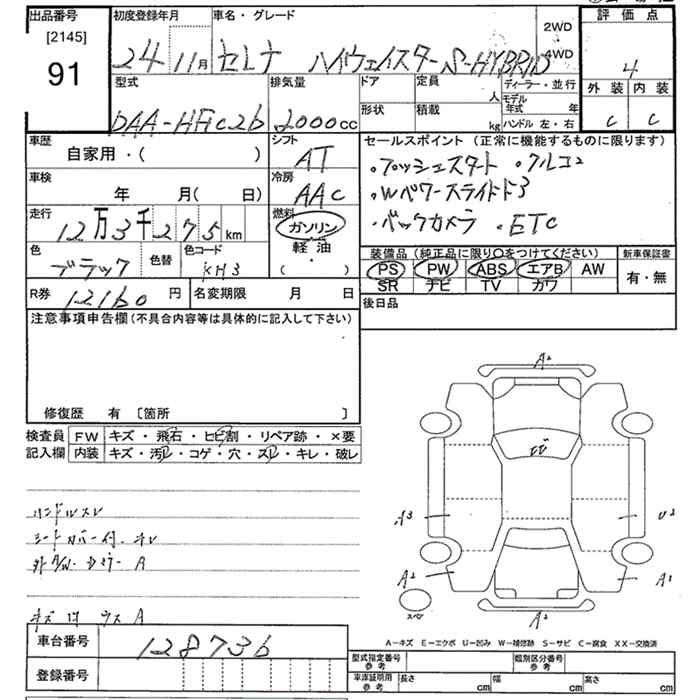 出品番号
[2145]
91
初度登録年月
24 11月
車名・グレード
セレナ ハイウェイスター S-HYBRID
2WD
4WD
評価点
4
外装 内装
C C
型式
DAA-HFC26
排気量
2000cc
ドア
形状
定員
人
積載
kg
ディーラー・並行
モデル年式 年
ハンドル 左・右
車歴
自家用・( )
シフト
AT
車検
年 月( 日)
冷房
AAC
走行
12万3千275km
燃料
ガソリン
軽油
( )
色
ブラック
色替
色コード
KH3
R券
12160円
名変期限 月 日
セールスポイント(正常に機能するものに限ります)
・プッシュスタート ・クルコン
・Wパワースライドドア
・バックカメラ ・ETC
装備品(純正品に限り〇をつけてください)
PS PW ABS エアB AW
SR ナビ TV カワ
新車保証書
有・無
後日品
注意事項申告欄(不具合内容等は具体的に記入して下さい)
修復歴 有 [箇所 ]
検査員記入欄
FW キズ・飛石・ヒビ割・リペア跡・×要
内装 キズ・汚レ・コゲ・穴・スレ・キレ・破レ
ハンドルスレ
シートカバー付
A
キズ
A
A2
A3
A2
A2
A1
スペア
A-キズ E-エクボ U-凹み W-補修跡 S-サビ C-腐食 XX-交換済
車台番号
128736
登録番号
型式指定番号 参考
類別区分番号 参考
車庫証明用 参考
長さ cm
幅 cm
高さ cm